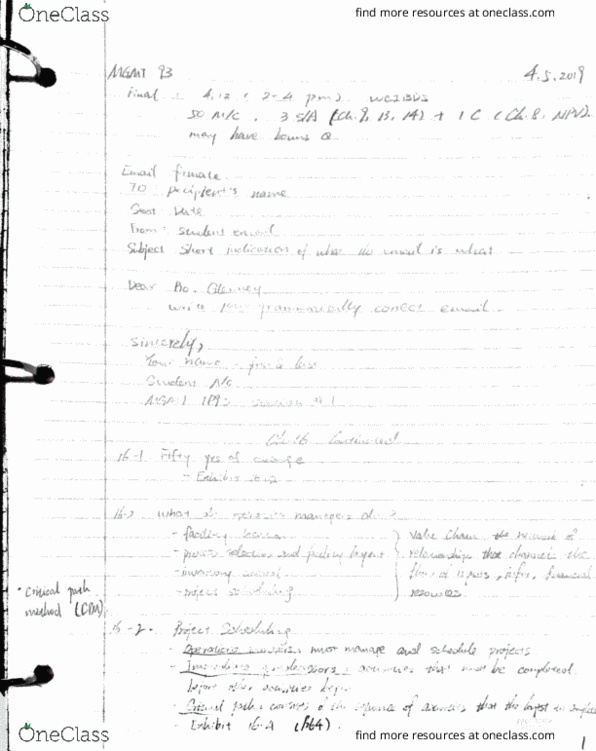 OneClass
find more resources at oneclass.com
MGMT 93
4.5.2019
Final : 4.12 ( 2-4 pm).
50 M/C, 3 S/A (Ch. 9, 13, 14) + 1 C (Ch. 8, NPV).
may have bonus Q
Email
To recipient's name
Sent Date
From: student email
Subject Short indication of what the email is
Dear
write your grammatically correct email.
Sincerely,
Your name
Student
Ch. 16 Continued
16-1 Fifty yrs of change
- Exhibit
16-2 What do operations managers do ?
- facility location
- process selection and facility layout
- inventory control
- project scheduling
Value Chain: the network of
relationships that channels the
flow of inputs, info, financial
resources
• Critical path
method (CPM)
16-2. Project Scheduling
- Operations managers must manage and schedule projects
- Immediate predecessors: activities that must be completed
before other activities begin
- Critical path: consists of the sequence of activities that the longest
- Exhibit 16-2 (P.64).
1
OneClass
find more resources at oneclass.com